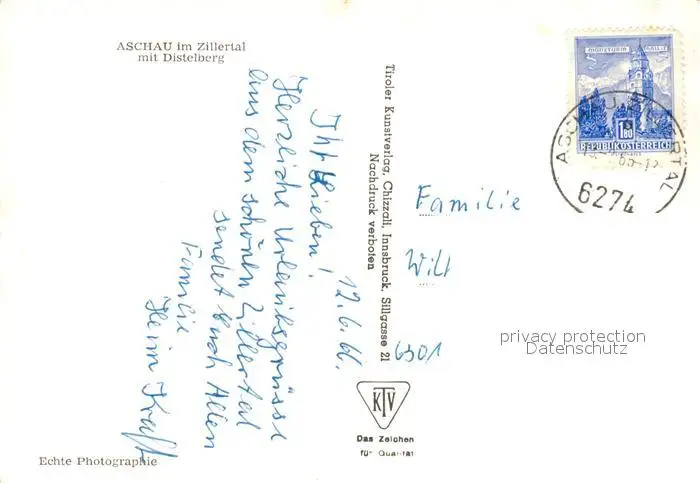 ASCHAU im Zillertal
mit Distelberg
12.6.66.
Ihr Lieben!
Herzliche Urlaubsgrüsse
aus dem schönen Zillertal
sendet Euch Allen
Familie
Heini Kraft
Echte Photographie
Tiroler Kunstverlag, Chizzali, Innsbruck, Sillgasse 21
Nachdruck verboten
KTV
Das Zeichen
für Qualität
MÜNZTURM HALL
1.80
REPUBLIK ÖSTERREICH
ASCHAU ZILLERTAL
6274
Familie
Wilt
6301
privacy protection
Datenschutz